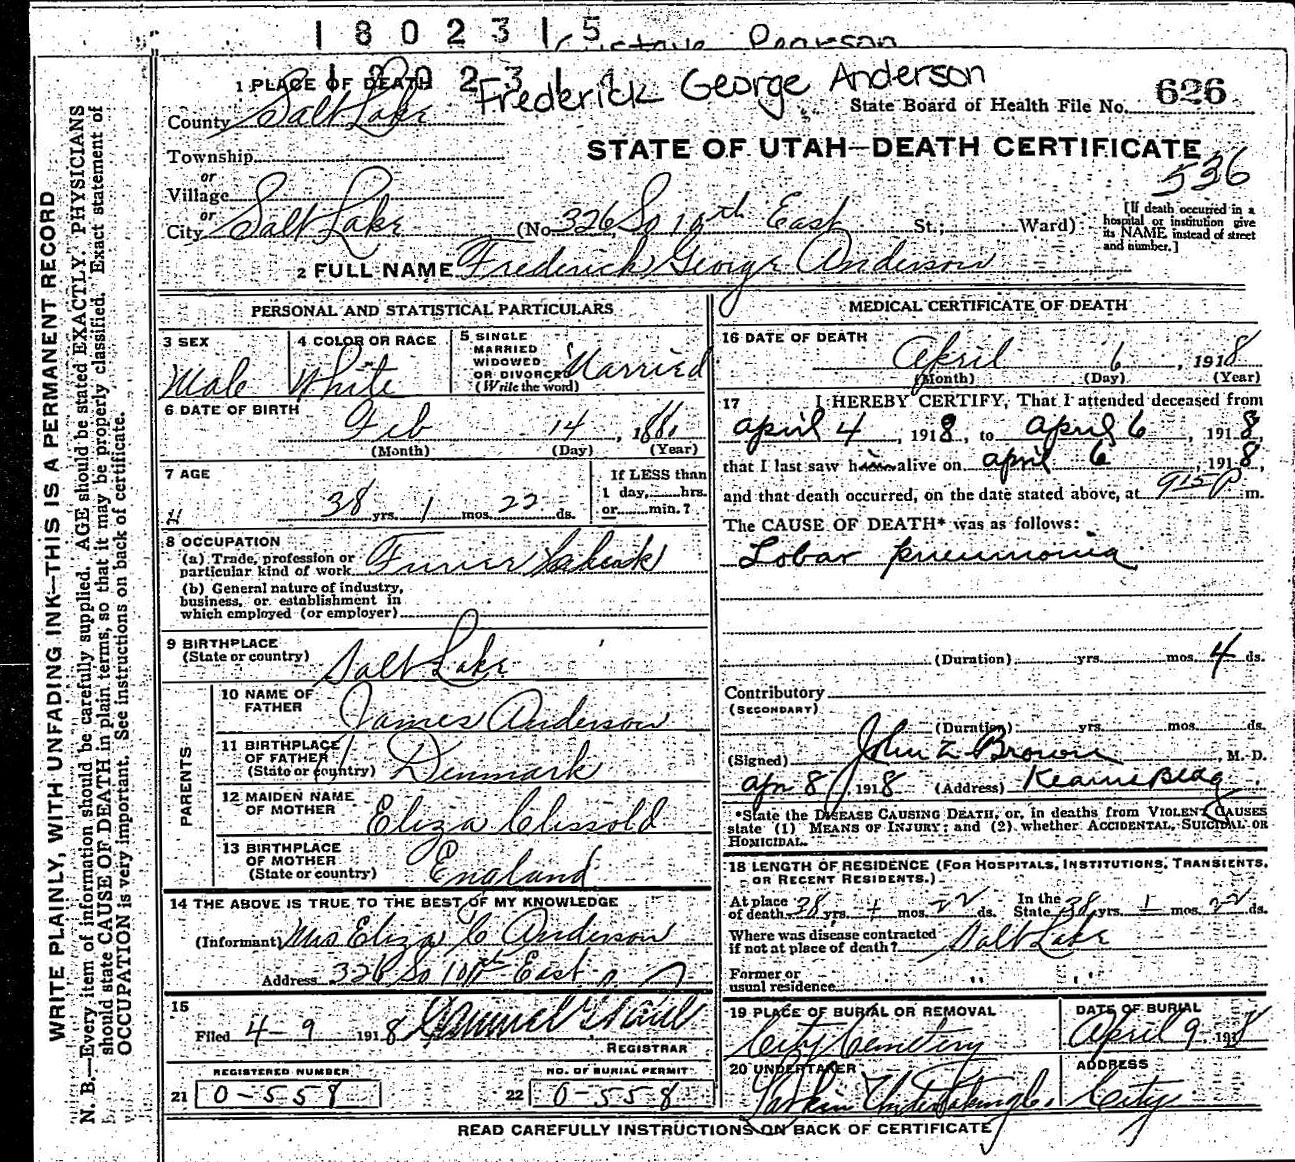 1 8 0 2 3 1 5
Pearson
1 PLACE OF DEATH
Frederick George Anderson
State Board of Health File No. 626
County Salt Lake
STATE OF UTAH—DEATH CERTIFICATE
536
Township
or
Village
or
City Salt Lake (No. 326 So 10th East St.; Ward)
[If death occurred in a
hospital or institution give
its NAME instead of street
and number.]
2 FULL NAME Frederick George Anderson
PERSONAL AND STATISTICAL PARTICULARS
3 SEX
Male
4 COLOR OR RACE
White
5 SINGLE
MARRIED
WIDOWED
OR DIVORCED
(Write the word)
Married
6 DATE OF BIRTH
Feb 14
(Month) (Day) (Year)
7 AGE
38 yrs. 1 mos. 22 ds.
If LESS than
1 day, hrs.
or min.?
8 OCCUPATION
(a) Trade, profession or
particular kind of work
(b) General nature of industry,
business, or establishment in
which employed (or employer)
9 BIRTHPLACE
(State or country) Salt Lake
PARENTS
10 NAME OF
FATHER
James Anderson
11 BIRTHPLACE
OF FATHER
(State or country) Denmark
12 MAIDEN NAME
OF MOTHER
Eliza Clissold
13 BIRTHPLACE
OF MOTHER
(State or country) England
14 THE ABOVE IS TRUE TO THE BEST OF MY KNOWLEDGE
(Informant) Mrs Eliza C Anderson
Address 326 So 10th East
15
Filed 4-9 1918
REGISTRAR
REGISTERED NUMBER
21 0-558
NO. OF BURIAL PERMIT
22 0-558
MEDICAL CERTIFICATE OF DEATH
16 DATE OF DEATH
April 6, 1918
(Month) (Day) (Year)
17 I HEREBY CERTIFY, That I attended deceased from
April 4, 1918, to April 6, 1918,
that I last saw him alive on April 6, 1918,
and that death occurred, on the date stated above, at 915 P m.
The CAUSE OF DEATH* was as follows:
Lobar pneumonia
(Duration) yrs. mos. 4 ds.
Contributory
(SECONDARY)
(Duration) yrs. mos. ds.
(Signed) John Z Brown, M. D.
Apr 8 1918 (Address) Kearns Bldg
*State the DISEASE CAUSING DEATH, or, in deaths from VIOLENT CAUSES
state (1) MEANS OF INJURY; and (2) whether ACCIDENTAL, SUICIDAL OR
HOMICIDAL.
18 LENGTH OF RESIDENCE (FOR HOSPITALS, INSTITUTIONS, TRANSIENTS,
OR RECENT RESIDENTS.)
At place
of death 38 yrs. 1 mos. 22 ds.
In the
State 38 yrs. 1 mos. 22 ds.
Where was disease contracted
if not at place of death? Salt Lake
Former or
usual residence " "
19 PLACE OF BURIAL OR REMOVAL
City Cemetery
DATE OF BURIAL
April 9 1918
20 UNDERTAKER
ADDRESS
City
READ CAREFULLY INSTRUCTIONS ON BACK OF CERTIFICATE
WRITE PLAINLY, WITH UNFADING INK—THIS IS A PERMANENT RECORD
N. B.—Every item of information should be carefully supplied. AGE should be stated EXACTLY. PHYSICIANS
should state CAUSE OF DEATH in plain terms, so that it may be properly classified. Exact statement of
OCCUPATION is very important. See instructions on back of certificate.